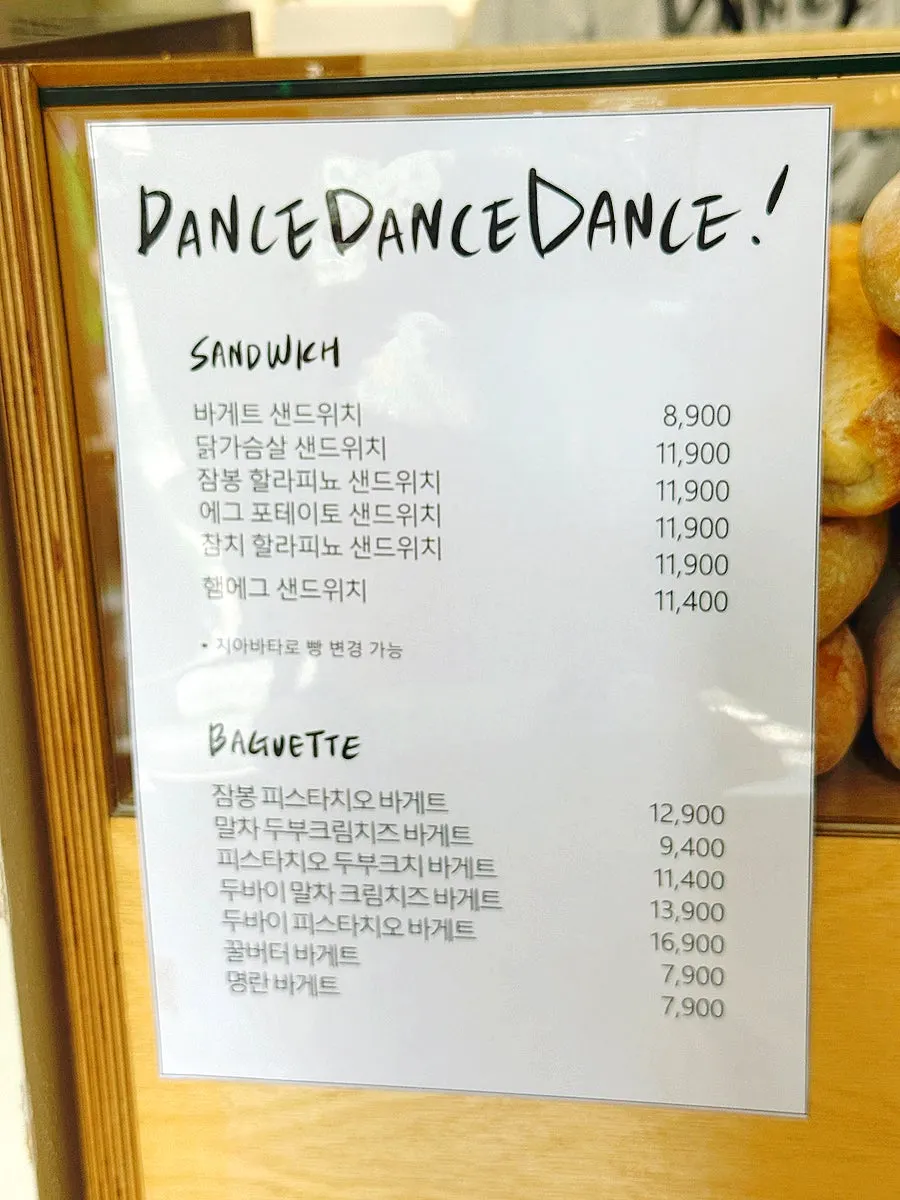 DANCE DANCE DANCE!
SANDWICH
바게트 샌드위치 8,900
닭가슴살 샌드위치 11,900
잠봉 할라피뇨 샌드위치 11,900
에그 포테이토 샌드위치 11,900
참치 할라피뇨 샌드위치 11,900
햄에그 샌드위치 11,400
• 치아바타로 빵 변경 가능
BAGUETTE
잠봉 피스타치오 바게트 12,900
말차 두부크림치즈 바게트 9,400
피스타치오 두부크치 바게트 11,400
두바이 말차 크림치즈 바게트 13,900
두바이 피스타치오 바게트 16,900
꿀버터 바게트 7,900
명란 바게트 7,900